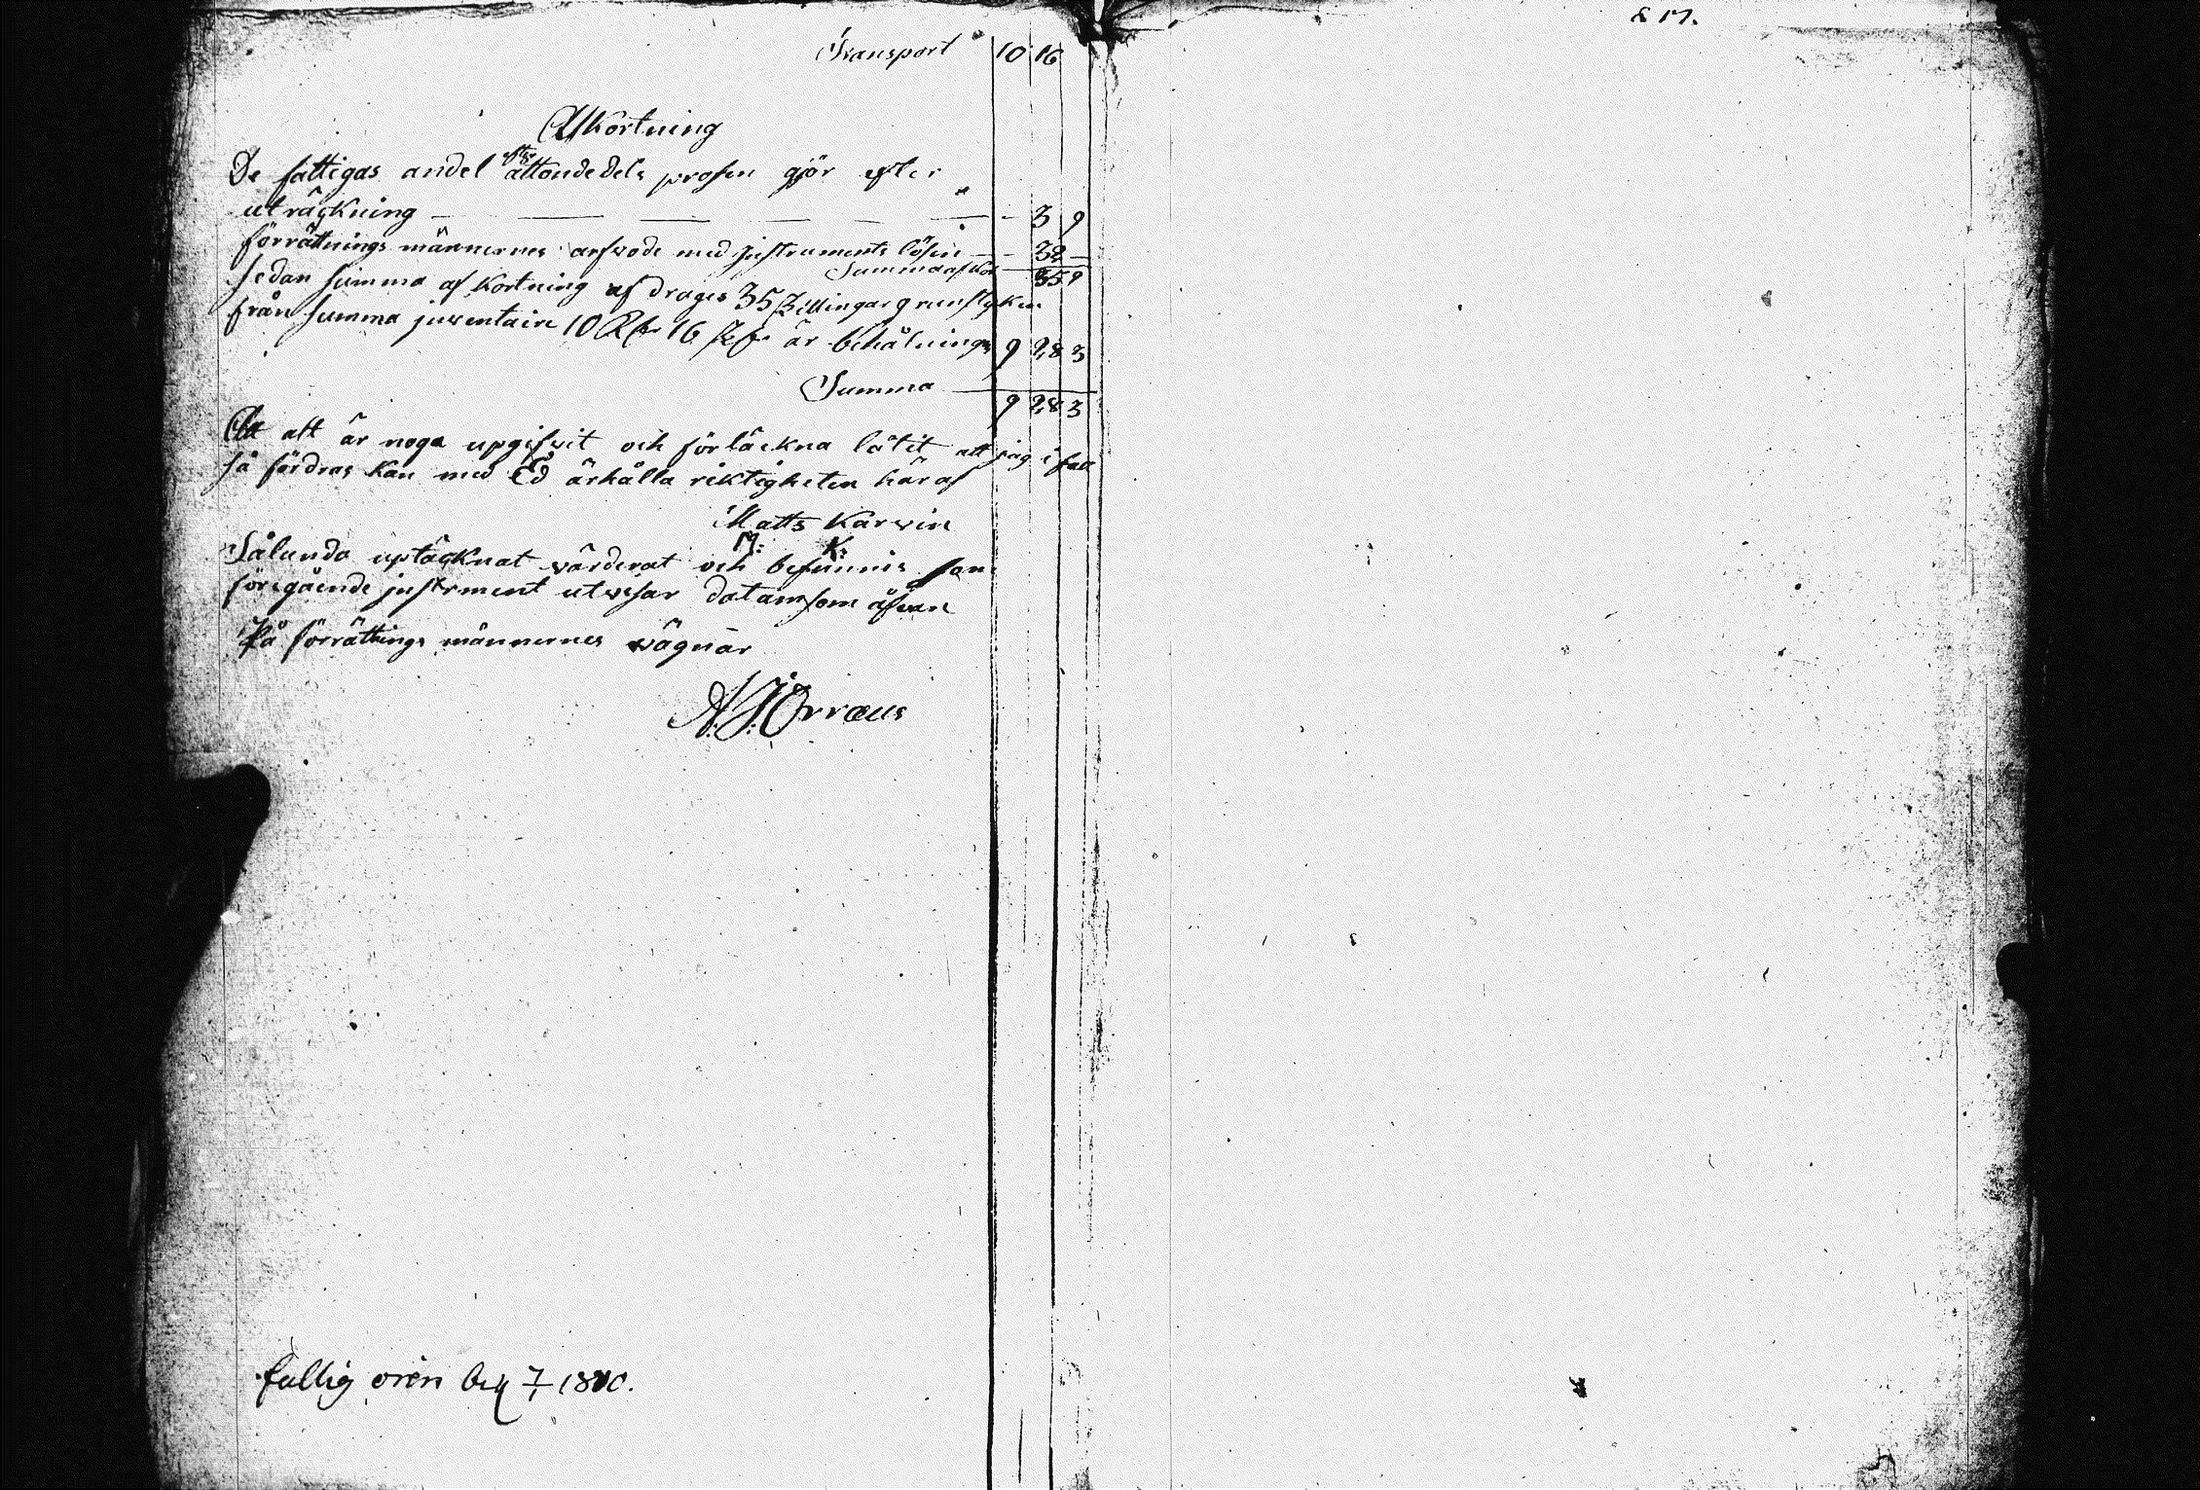 Transport 10 16
Afkortning
De fattigas andel efter attondedels prosen gjör efter
uträckning — — — — — — 3 9
förrättnings männernes arfvode med Justruments lösen — 32 —
Summa afkor 35 9
sedan summa af kortning af drages 35 ßzillingar 9 runstyken
från summa juventaire 10 16 är behålning 9 28 3
Summa 9 28 3
att är noga upgifvit och förtäckna låtit att jag i fall
så fördras kan med Ed ärhålla riktigheten här af
Matts Karvin
M: K:
Sålunda uptäcknat värderat och befunnis som
föregående justrment utvisar datam som åfvan
På förrättnings männernes vägnar
A. J. Orræus
fattig 1800.